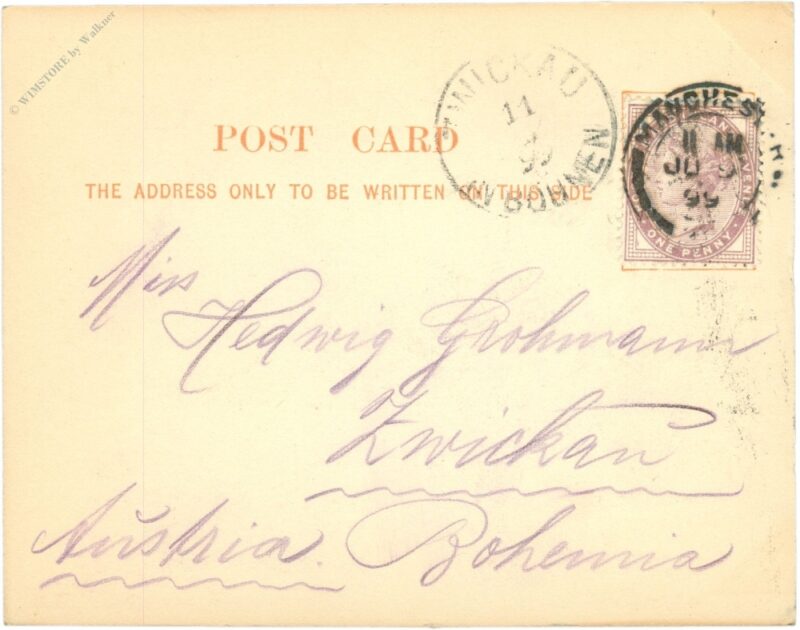 © WIMSTORE by Walkner
POST CARD
THE ADDRESS ONLY TO BE WRITTEN ON THIS SIDE
ZWICKAU
11
99
IN BÖHMEN
MANCHESTER
11 AM
JU 9
99
ONE PENNY
Miss
Hedwig Grohmann
Zwickau
Austria. Bohemia